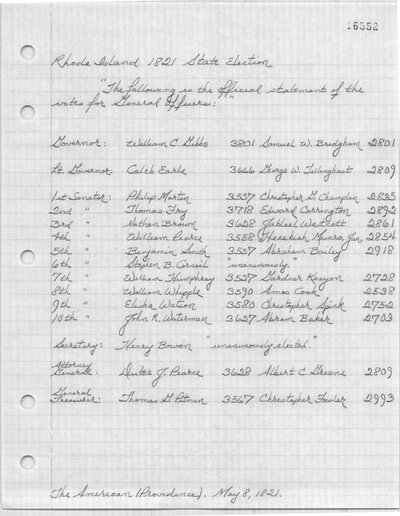 16552
Rhode Island 1821 State Election
"The following is the official statement of the
votes for General Officers:"
Governor: William C. Gibbs 3801 Samuel W. Bridgham 2801
Lt. Governor: Caleb Earle 3666 George W. Tillinghast 2809
1st Senator: Philip Martin 3557 Christopher G. Champlin 2835
2nd " Thomas Fry 3718 Edward Carrington 2892
3rd " Nathan Brown 3628 Jathiel Westcott 2861
4th " William Pearce 3558 Hezekiah Munro, Jun. 2854
5th " Benjamin Smith 3557 Abraham Bailey 2918
6th " Stephen B. Cornell "unanimously."
7th " William Humphrey 3527 Gardner Kenyon 2728
8th " William Whipple 3590 Amos Cook 2538
9th " Elisha Watson 3580 Christopher Spink 2752
10th " John R. Waterman 3627 Abram Baker 2703
Secretary: Henry Bowen "unanimously elected."
Attorney
General: Dutee J. Pearce 3628 Albert C. Greene 2809
General
Treasurer: Thomas G. Pitman 3567 Christopher Fowler 2993
The American (Providence). May 8, 1821.